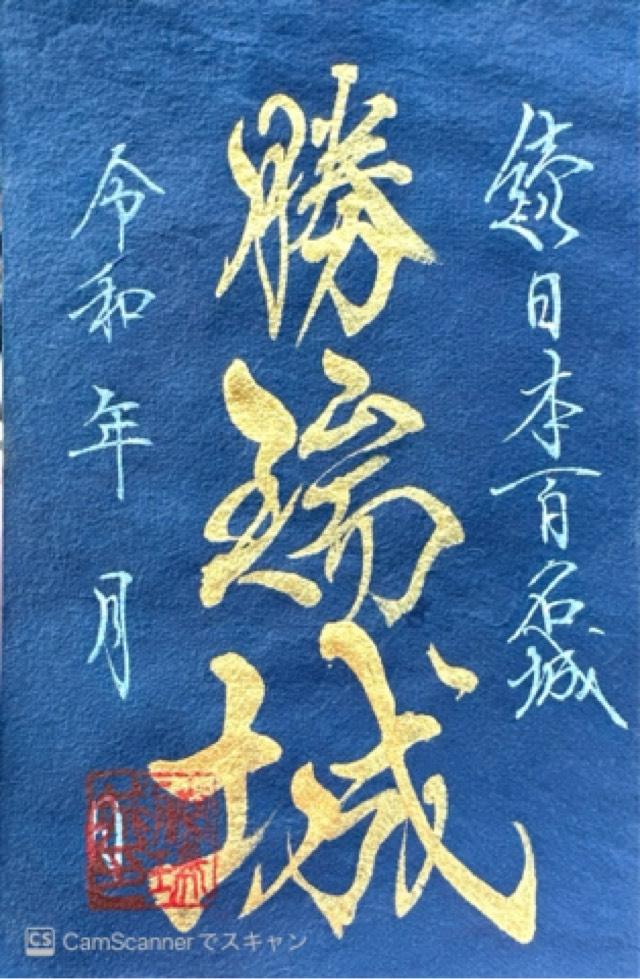 続日本百名城
勝瑞城
令和 年 月 日
CS CamScannerでスキャン